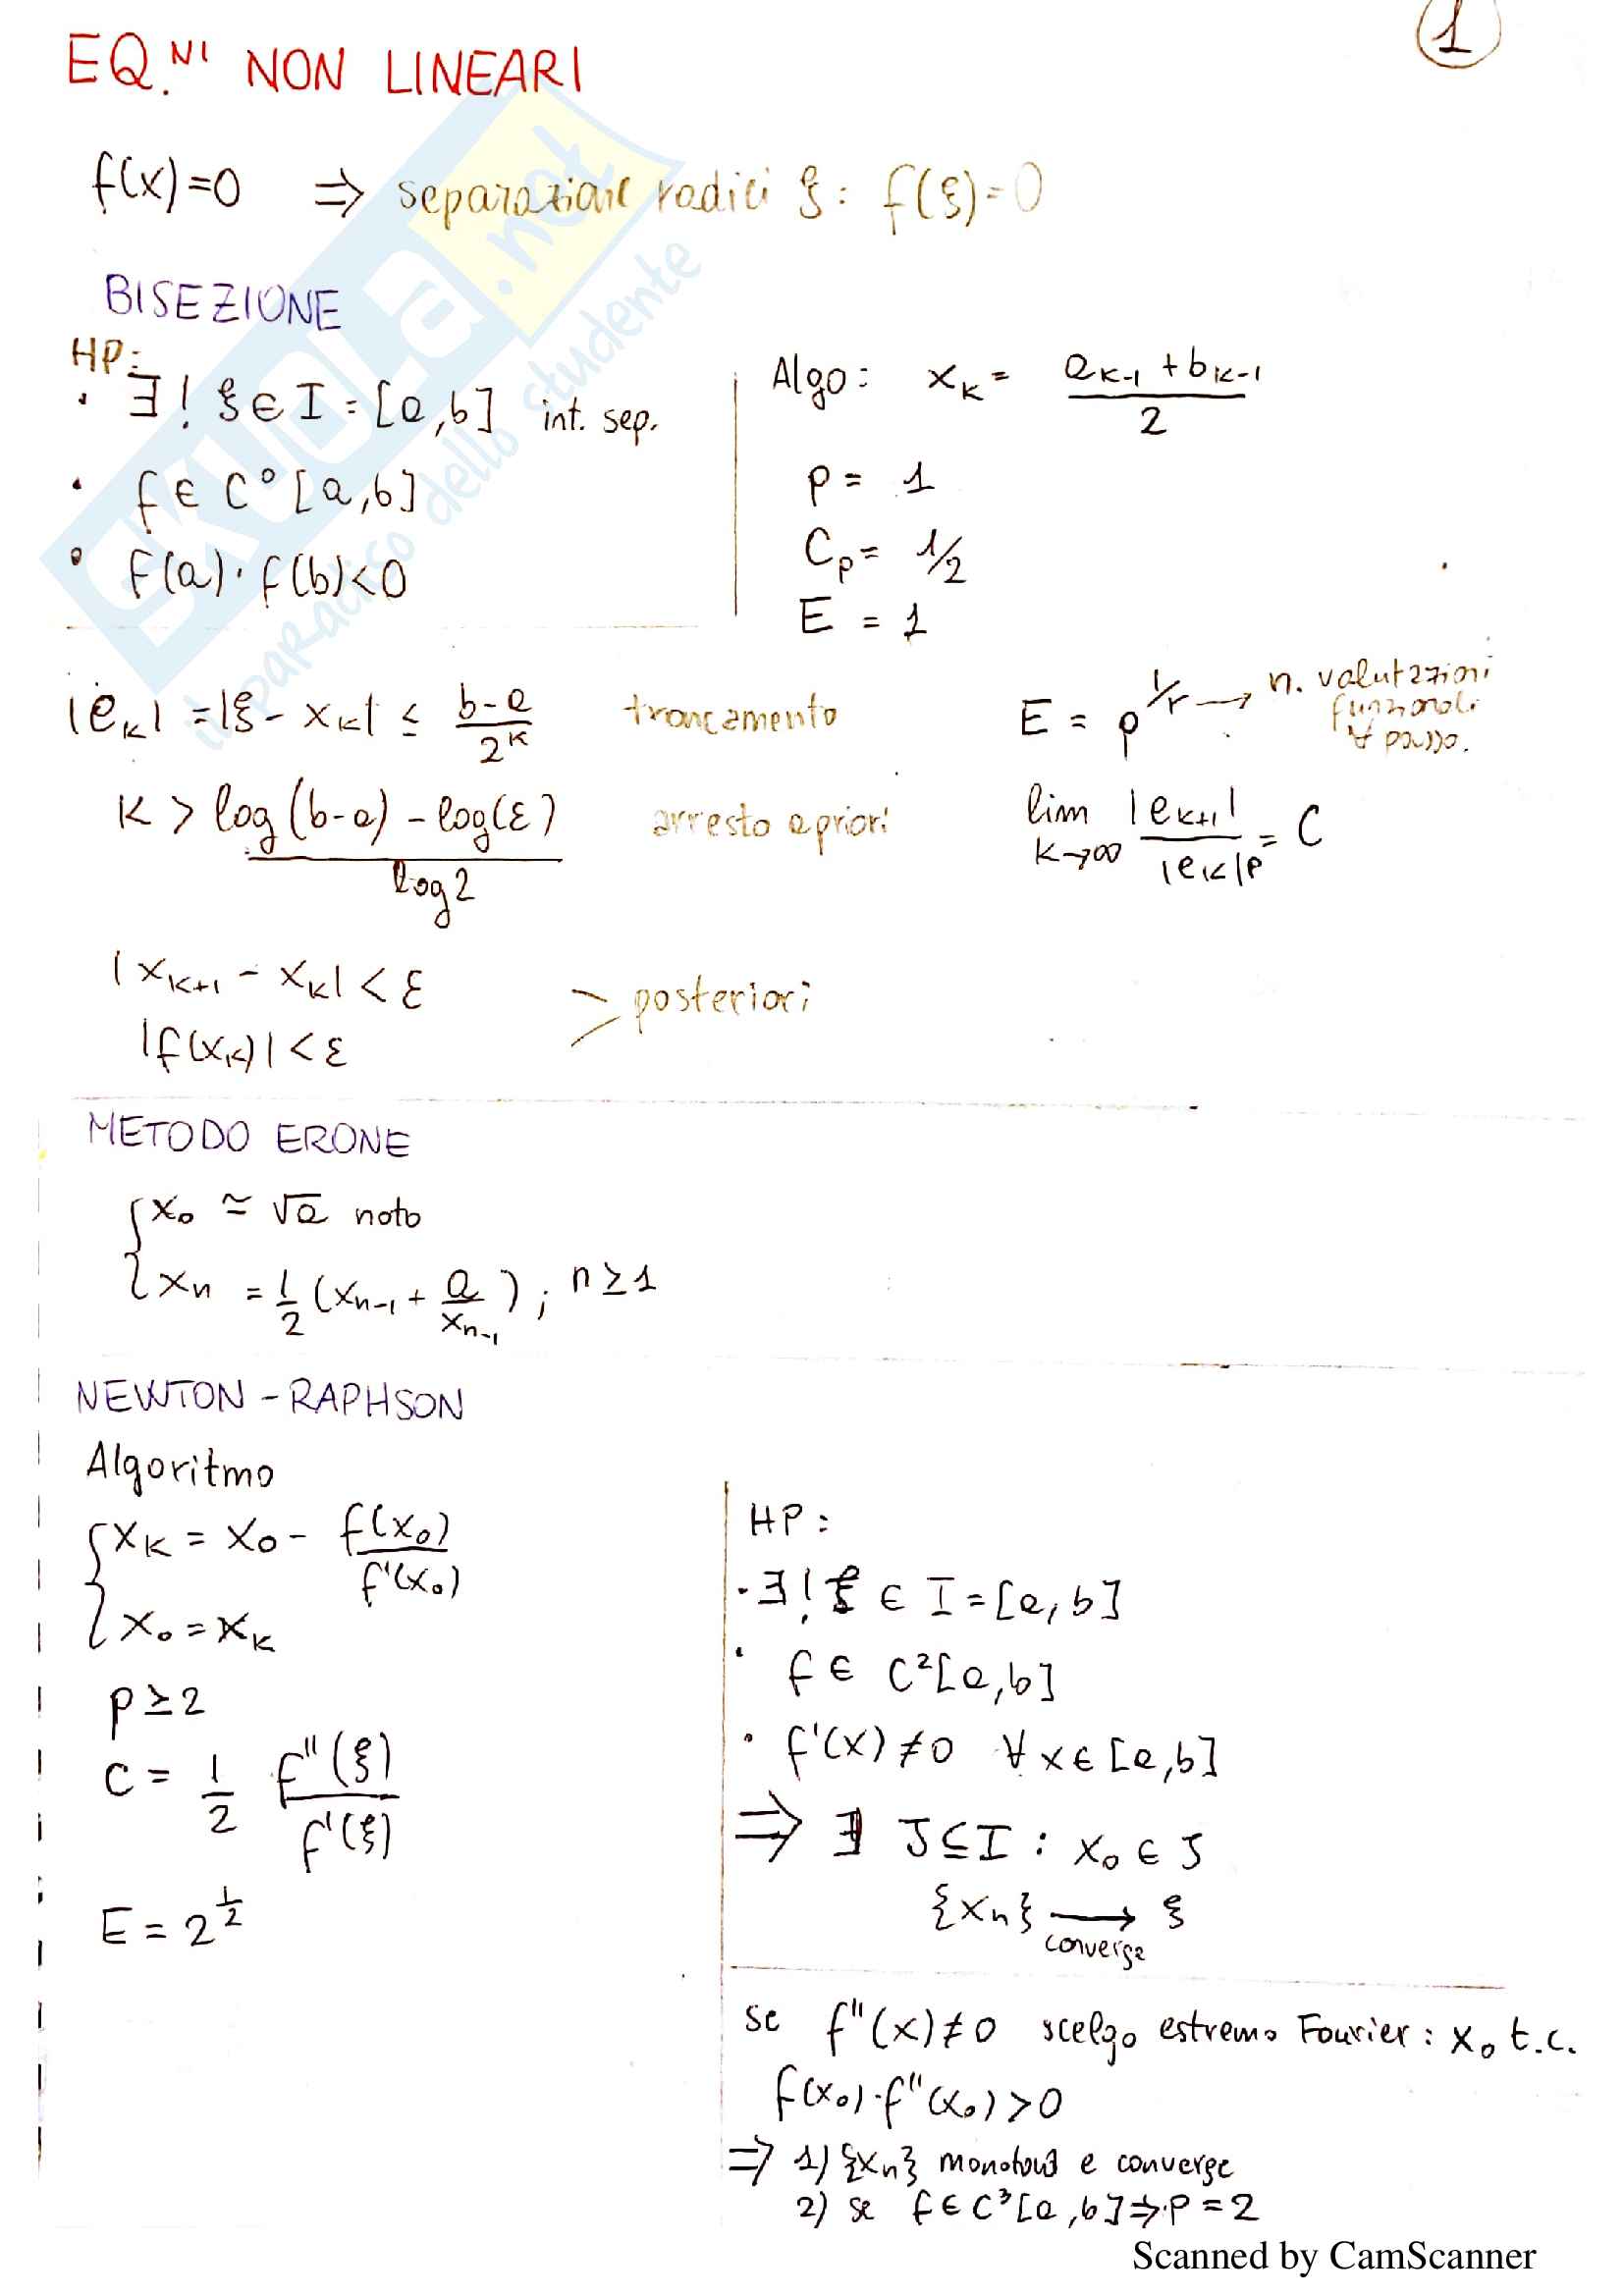 1
EQ.NI NON LINEARI
f(x)=0 ⇒ separazione radici ξ: f(ξ)=0
BISEZIONE
HP:
• ∃! ξ ∈ I = [a,b] int. sep.
• f ∈ C⁰ [a,b]
• f(a)·f(b)<0
Algo: x_k = (a_{k-1} + b_{k-1})/2
p = 1
C_p = 1/2
E = 1
|e_k| = |ξ - x_k| ≤ (b-a)/2^k troncamento
E = p^{1/r} → n. valutazioni funzionali ∀ passo.
k > (log(b-a) - log(ε))/log2 arresto a priori
lim_{k→∞} |e_{k+1}|/|e_k|^p = C
|x_{k+1} - x_k| < ε
|f(x_k)| < ε
> posteriori
METODO ERONE
{ x₀ ≃ √a noto
{ x_n = 1/2 (x_{n-1} + a/x_{n-1}) ; n ≥ 1
NEWTON - RAPHSON
Algoritmo
{ x_k = x₀ - f(x₀)/f'(x₀)
{ x₀ = x_k
p ≥ 2
C = 1/2 f''(ξ)/f'(ξ)
E = 2^{1/2}
HP:
• ∃! ξ ∈ I = [a,b]
• f ∈ C²[a,b]
• f'(x) ≠ 0 ∀ x ∈ [a,b]
⇒ ∃ J ⊆ I : x₀ ∈ J
{x_n} → ξ
converge
se f''(x) ≠ 0 scelgo estremo Fourier: x₀ t.c.
f(x₀)·f''(x₀) > 0
⇒ 1) {x_n} monotona e converge
2) se f ∈ C³[a,b] ⇒ p = 2
SKUOLA.net
il paradiso dello studente
Scanned by CamScanner